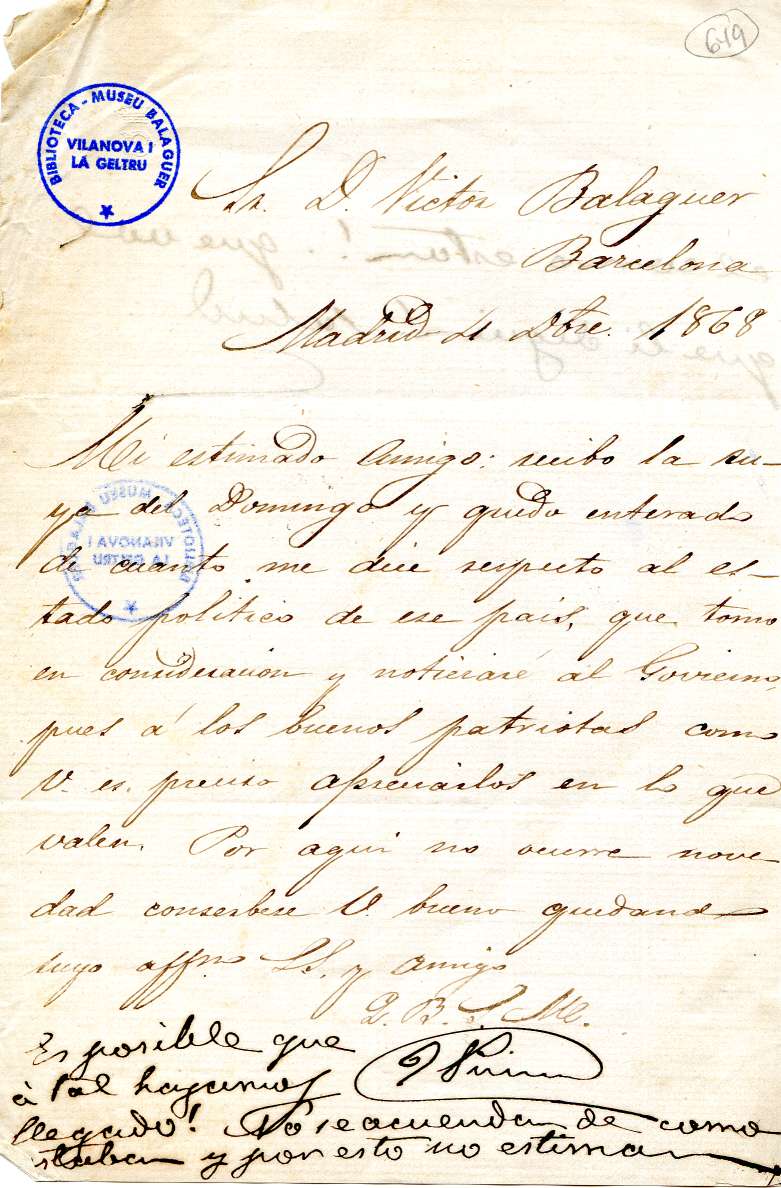 649
BIBLIOTECA - MUSEU BALAGUER
VILANOVA I
LA GELTRU
Sr. D. Victor Balaguer
Barcelona
Madrid 4 Dbre. 1868
Mi estimado amigo: recibo la su-
ya del Domingo y quedo enterado
de cuanto me dice respecto al es-
tado politico de ese país, que tomo
en consideracion y noticiaré al Govierno,
pues á los buenos patriotas como
V. es preciso apreciarlos en lo que
valen. Por aqui no ocurre nove-
dad conserbese V. bueno quedando
suyo affmo S.S. y amigo
Q. B. S. M.
Es posible que
á tal hayamos
J Prim
llegado! No se acuerdan de como
staban y por esto no estiman